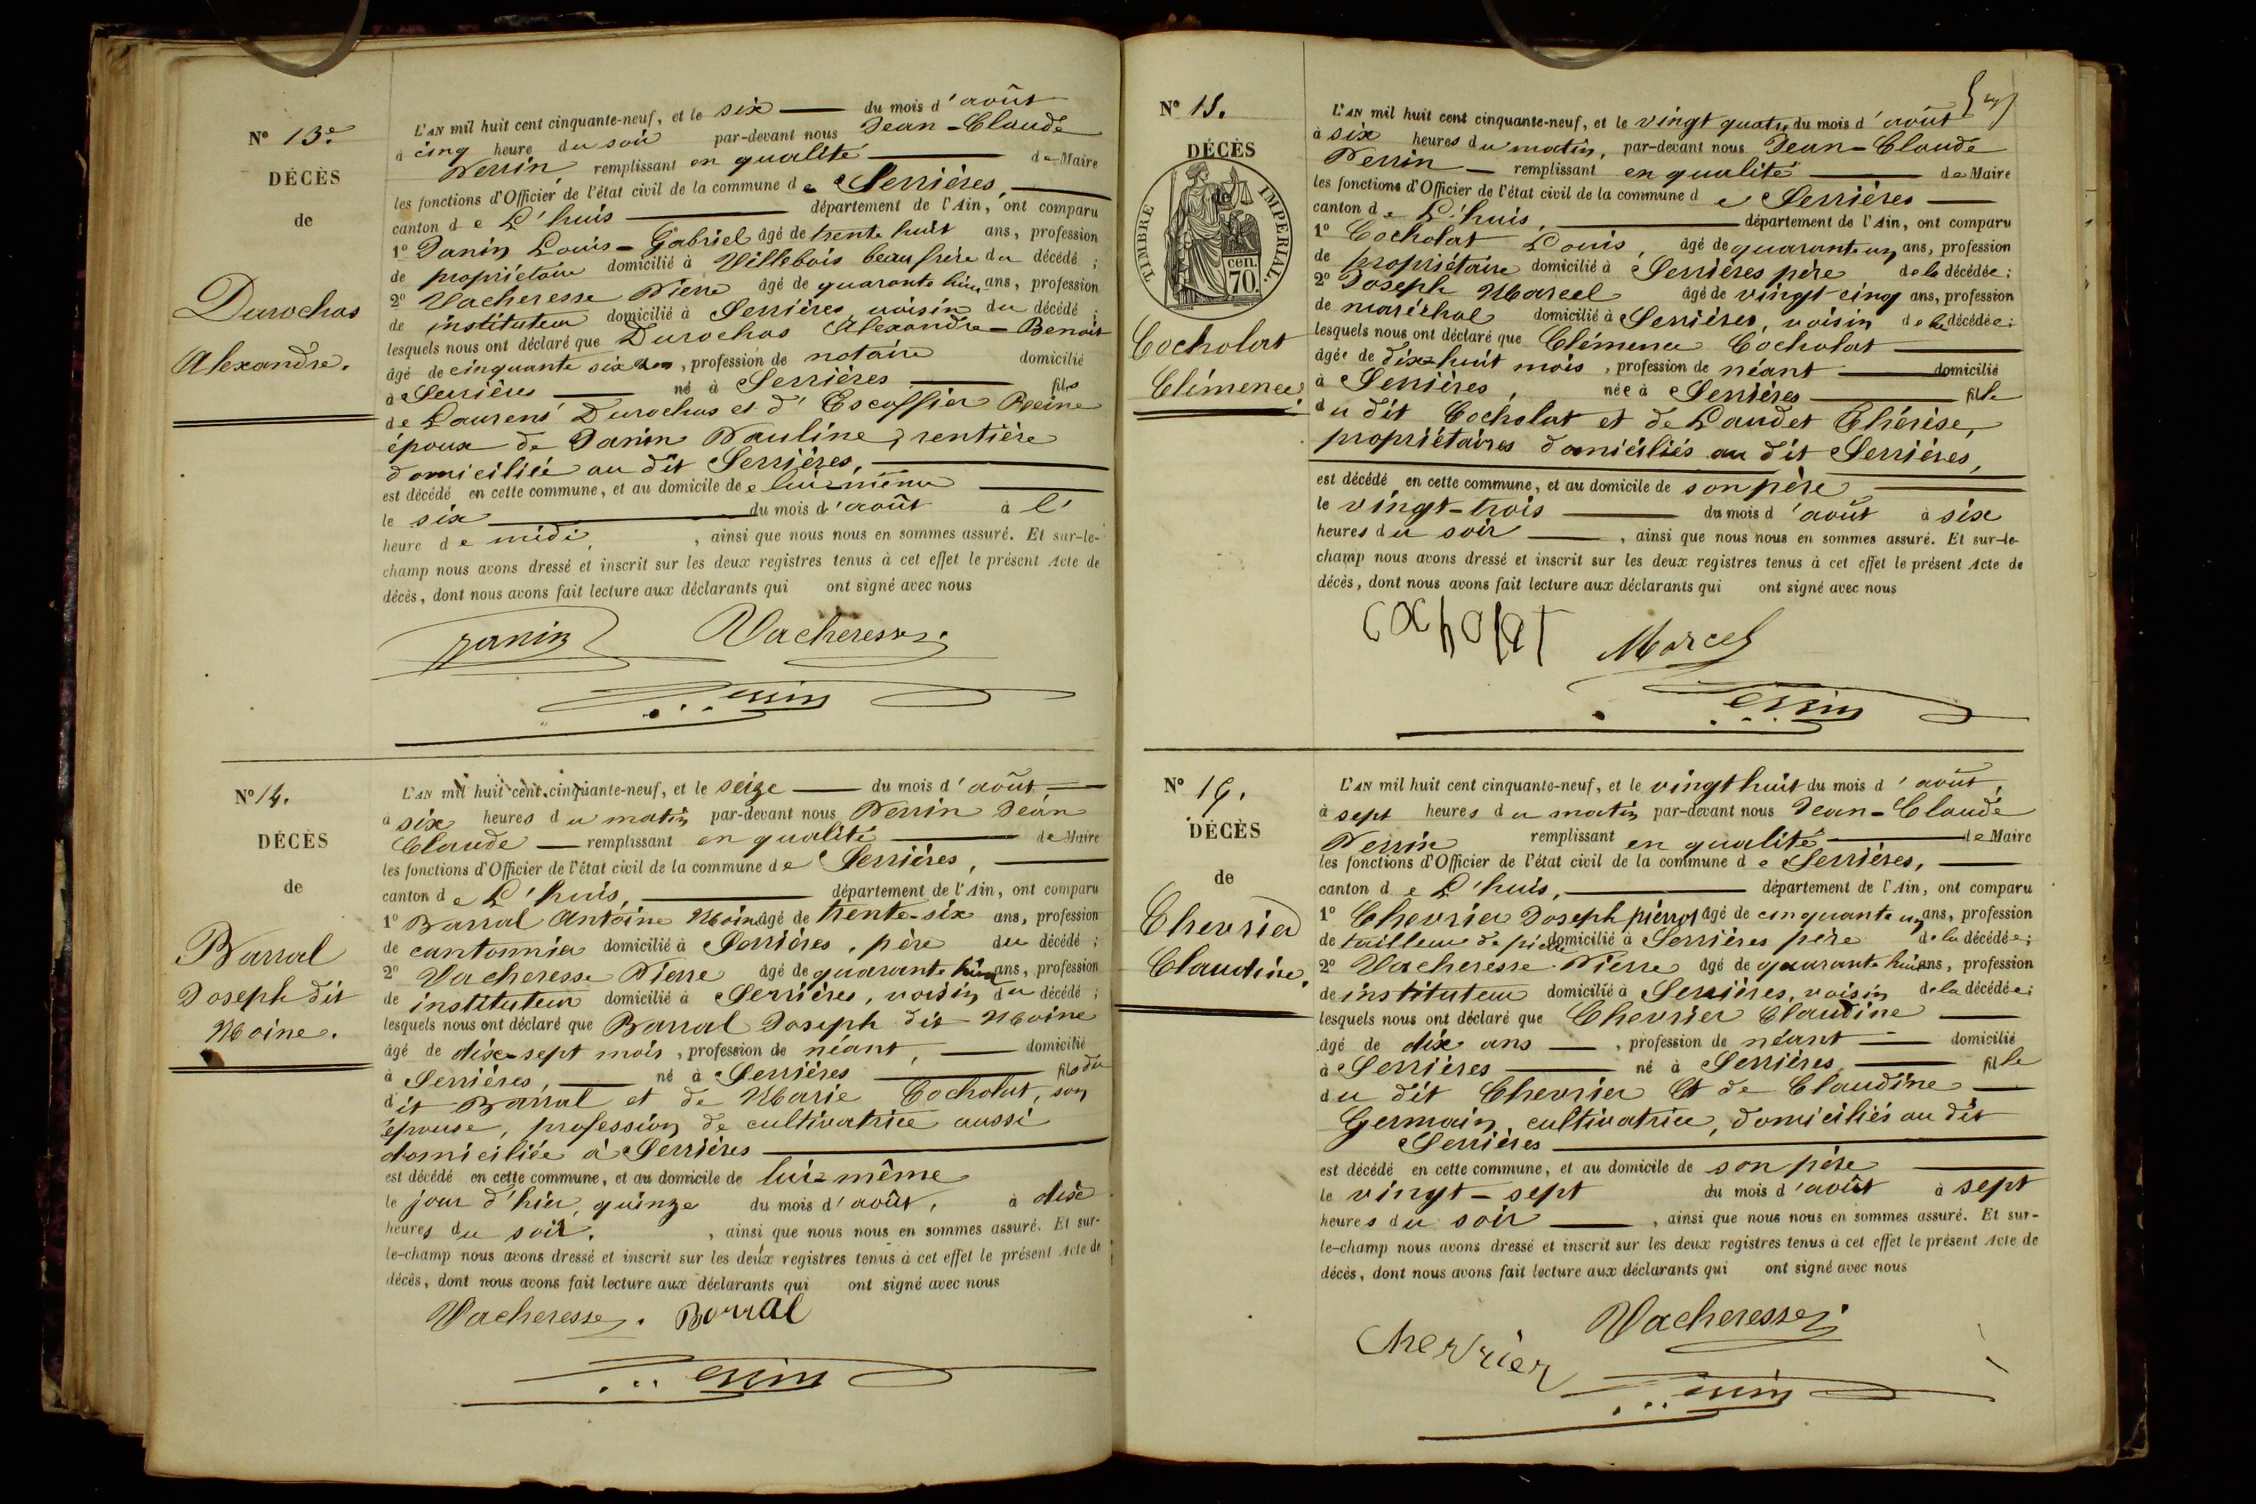 N° 13.e
DÉCÈS
de
Durochas
Alexandre.
L'AN mil huit cent cinquante-neuf, et le six du mois d'août
à cinq heure du soir par-devant nous Jean-Claude
Perrin remplissant en qualité de Maire
les fonctions d'Officier de l'état civil de la commune de Serrières,
canton de L'huis département de l'Ain, ont comparu
1° Janin Louis-Gabriel âgé de trente huit ans, profession
de propriétaire domicilié à Villebois beau frère du décédé ;
2° Vacheresse Pierre âgé de quarante huit ans, profession
de instituteur domicilié à Serrières, voisin du décédé ;
lesquels nous ont déclaré que Durochas Alexandre-Benoit
âgé de cinquante six ans, profession de notaire domicilié
à Serrières né à Serrières fils
de Laurens Durochas et d'Escoffier Reine
époux de Janin Pauline, rentière
domiciliée au dit Serrières,
est décédé en cette commune, et au domicile de lui-même
le six du mois d'août à l'
heure de midi, , ainsi que nous nous en sommes assuré. Et sur-le-
champ nous avons dressé et inscrit sur les deux registres tenus à cet effet le présent Acte de
décès, dont nous avons fait lecture aux déclarants qui ont signé avec nous
Janin Vacheresse
Perrin
N° 14.
DÉCÈS
de
Barral
Joseph dit
Moine.
L'AN mil huit cent cinquante-neuf, et le seize du mois d'août,
à six heures du matin par-devant nous Perrin Jean
Claude remplissant en qualité de Maire
les fonctions d'Officier de l'état civil de la commune de Serrières,
canton de L'huis, département de l'Ain, ont comparu
1° Barral Antoine Moine âgé de trente-six ans, profession
de cantonnier domicilié à Serrières, père du décédé ;
2° Vacheresse Pierre âgé de quarante huit ans, profession
de instituteur domicilié à Serrières, voisin du décédé ;
lesquels nous ont déclaré que Barral Joseph dit Moine
âgé de dix-sept mois, profession de néant, domicilié
à Serrières, né à Serrières fils du
dit Barral et de Marie Cocholat, son
épouse, profession de cultivatrice aussi
domiciliée à Serrières
est décédé en cette commune, et au domicile de lui-même
le jour d'hier, quinze du mois d'août, à dix
heures du soir. , ainsi que nous nous en sommes assuré. Et sur-
le-champ nous avons dressé et inscrit sur les deux registres tenus à cet effet le présent Acte de
décès, dont nous avons fait lecture aux déclarants qui ont signé avec nous
Vacheresse. Barral
Perrin
N° 15.
DÉCÈS
de
TIMBRE IMPÉRIAL.
cen. 70
Cocholat
Clémence.
L'AN mil huit cent cinquante-neuf, et le vingt quatre du mois d'août
à six heures du matin, par-devant nous Jean-Claude
Perrin remplissant en qualité de Maire
les fonctions d'Officier de l'état civil de la commune de Serrières
canton de L'huis, département de l'Ain, ont comparu
1° Cocholat Louis, âgé de quarante un ans, profession
de propriétaire domicilié à Serrières père de la décédée ;
2° Joseph Marcel âgé de vingt cinq ans, profession
de maréchal domicilié à Serrières, voisin de la décédée ;
lesquels nous ont déclaré que Clémence Cocholat
âgée de dix-huit mois, profession de néant domicilié
à Serrières, née à Serrières fille
du dit Cocholat et de Laudet Thérèse,
propriétaires domiciliés au dit Serrières,
est décédé en cette commune, et au domicile de son père
le vingt-trois du mois d'août à six
heures du soir , ainsi que nous nous en sommes assuré. Et sur-le-
champ nous avons dressé et inscrit sur les deux registres tenus à cet effet le présent Acte de
décès, dont nous avons fait lecture aux déclarants qui ont signé avec nous
cocholat Marcel
Perrin
N° 16.
DÉCÈS
de
Chevrier
Claudine.
L'AN mil huit cent cinquante-neuf, et le vingt huit du mois d'août,
à sept heures du matin par-devant nous Jean-Claude
Perrin remplissant en qualité de Maire
les fonctions d'Officier de l'état civil de la commune de Serrières,
canton de L'huis, département de l'Ain, ont comparu
1° Chevrier Joseph pierrot âgé de cinquante un ans, profession
de tailleur de pierre domicilié à Serrières père de la décédée ;
2° Vacheresse Pierre âgé de quarante huit ans, profession
de instituteur domicilié à Serrières, voisin de la décédée ;
lesquels nous ont déclaré que Chevrier Claudine
âgé de dix ans , profession de néant domicilié
à Serrières né à Serrières, fille
du dit Chevrier et de Claudine
Germain, cultivatrice, domiciliés au dit
Serrières
est décédé en cette commune, et au domicile de son père
le vingt-sept du mois d'août à sept
heures du soir , ainsi que nous nous en sommes assuré. Et sur-
le-champ nous avons dressé et inscrit sur les deux registres tenus à cet effet le présent Acte de
décès, dont nous avons fait lecture aux déclarants qui ont signé avec nous
Vacheresse
chevrier
Perrin